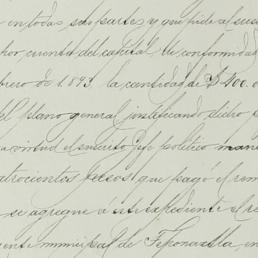 en todas sus partes y que pide al suso
por cuenta del capital de conformidad
brero de 1893, la cantidad de $400. o
el plano general justificando dicho
a virtud el suscrito Jefe político man
atrocientos pesos que pagó el rem
se agregue á este expediente el re
ente municipal de Teponaxtla, en